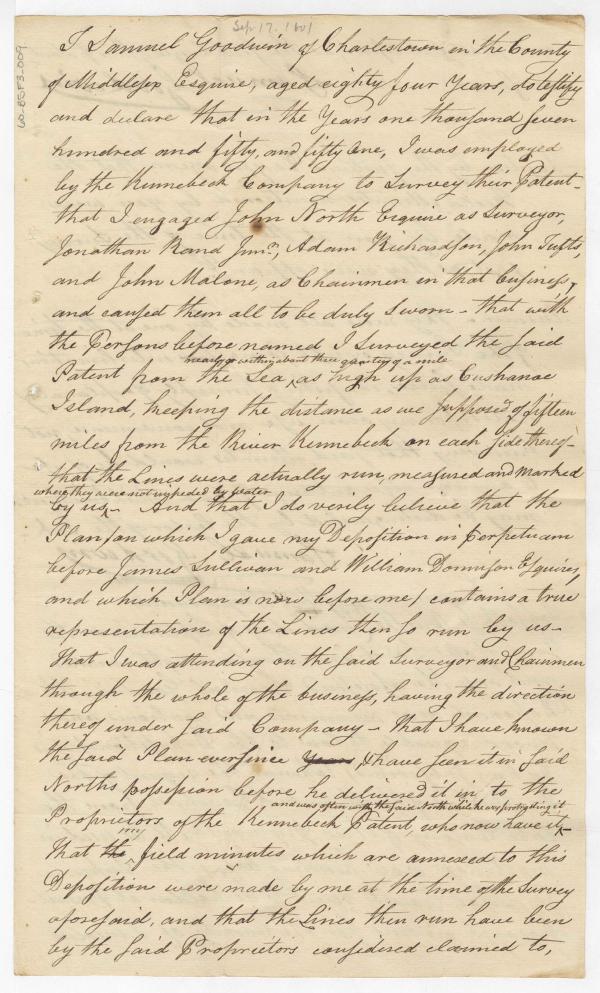 Sep 17. 1801
60-ESF3-009
I Samuel Goodwin of Charlestown in the County
of Middlesex Esquire, aged eighty four Years, do testify
and declare that in the Years one thousand seven
hundred and fifty, and fifty one, I was employed
by the Kennebeck Company to Survey their Patent–
that I engaged John North Esquire as Surveyor,
Jonathan Rand Junr., Adam Richardson, John Tufts,
and John Malone, as Chainmen in that business,
and caused them all to be duly sworn – that with
the Persons before named I Surveyed the said
nearly or within about three quarters of a mile
Patent from the Sea, ^ as high up as Cushanoc
Island, keeping the distance as we supposed of fifteen
miles from the River Kennebeck on each side thereof–
that the Lines were actually run, measured and marked
where they were not impeded by water
by us ^ – And that I do verily believe that the
Plan / on which I gave my Deposition in perpetuam
before James Sullivan and William Donnison Esquires,
and which Plan is now before me / contains a true
representation of the Lines then so run by us–
That I was attending on the said Surveyor and Chainmen
through the whole of the business, having the direction
thereof under said Company – that I have known
the said Plan ever since Years & have seen it in said
Norths possession before he delivered it in to the
and was often with the said North while he was protracting it
Proprietors of the Kennebeck Patent, who now have it ^–
That the field minutes which are annexed to this
Deposition were made by me at the time of the Survey
aforesaid, and that the Lines then run have been
by the said Proprietors considered claimed to,